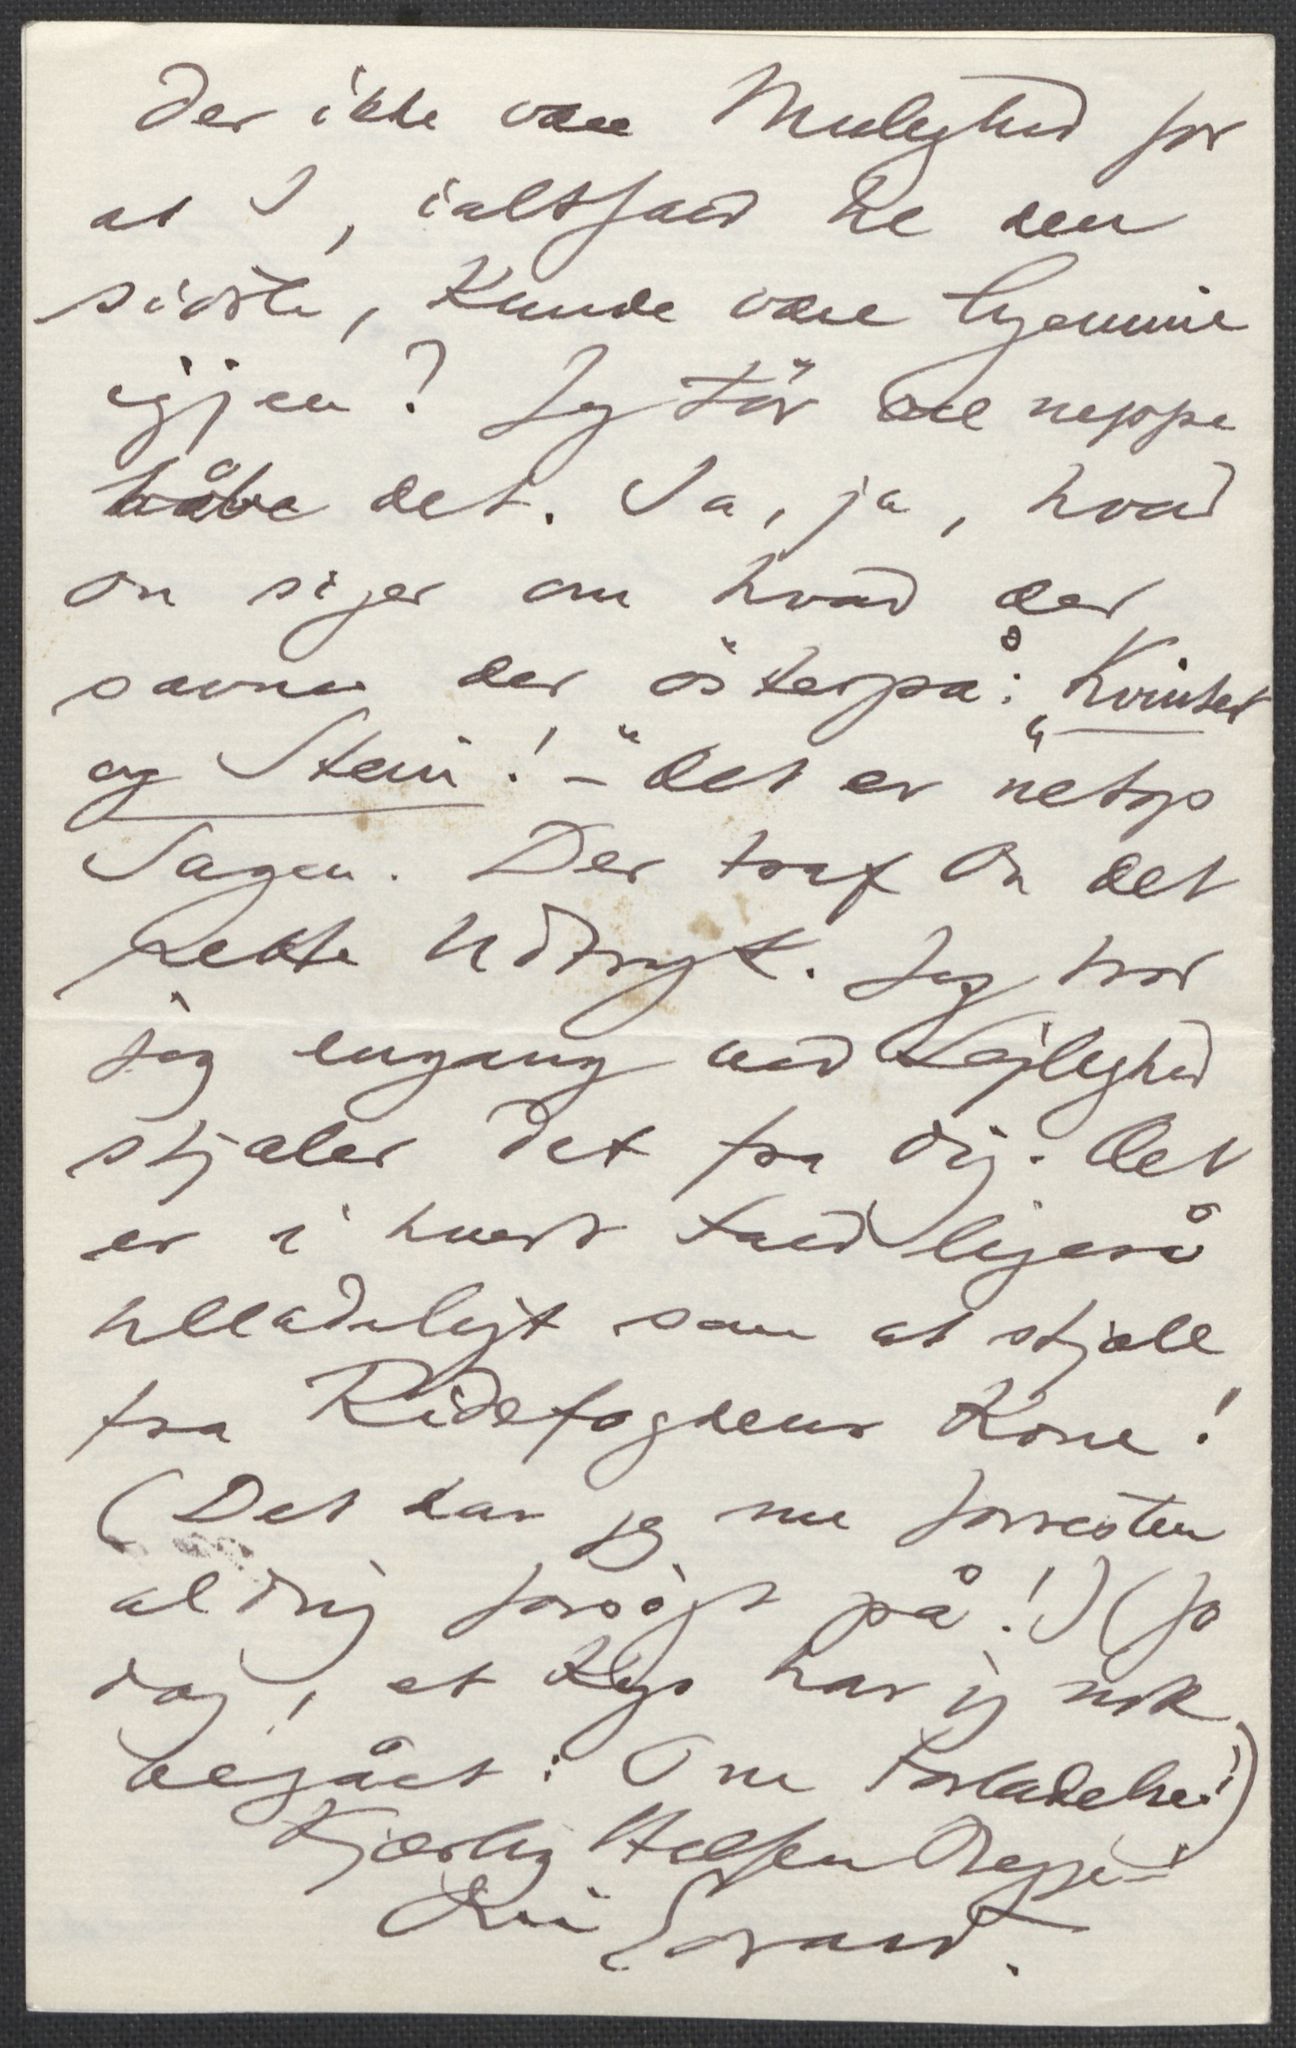 der ikke være Mulighed for
at I, ialtfald til den
sidste, kunde være hjemme
igjen? Jeg tör vel neppe
håbe det. Ja, ja, hvad
du siger om hvad der
savnes der österpå: „Kvister
og Stein!" – det er netop
Sagen. Der traf Du det
rette Udtryk. Jeg tror
jeg engang ved Lejlighed
stjæler det fra dig. Det
er i hvert Fald ligeså
tilladeligt som at stjæle
fra Ridefogdens Kone!
(Det har jeg nu forresten
aldrig forsögt på!) (Jo
dog, et Kys har jeg nok
begået: Om Forladelse!)
Kjærlig Hilsen Begge!
Din Edvard.